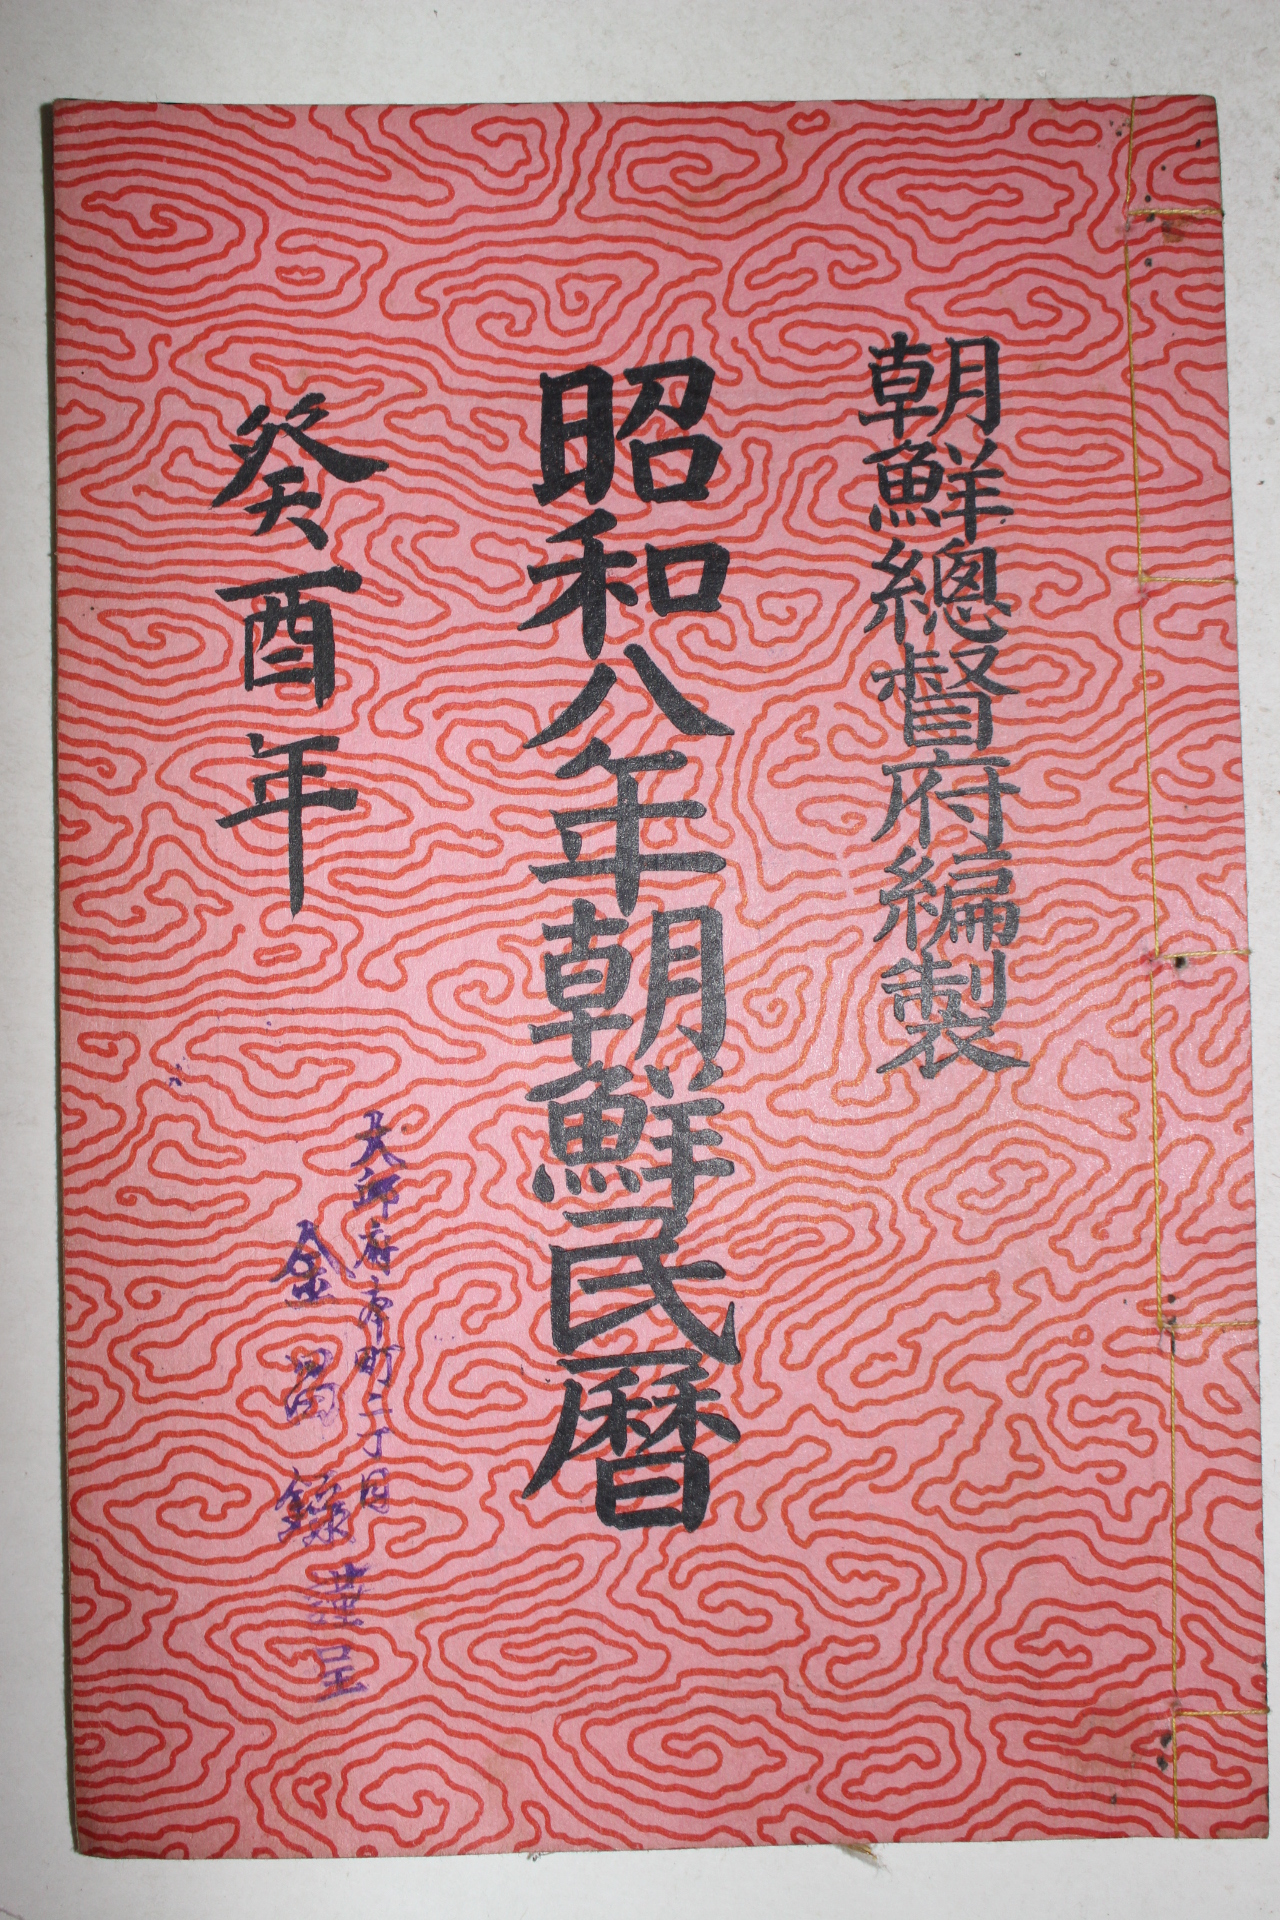 朝鮮總督府編製
昭和八年朝鮮民曆
癸酉年
大邱府本町二丁目
金昌鎔謹呈